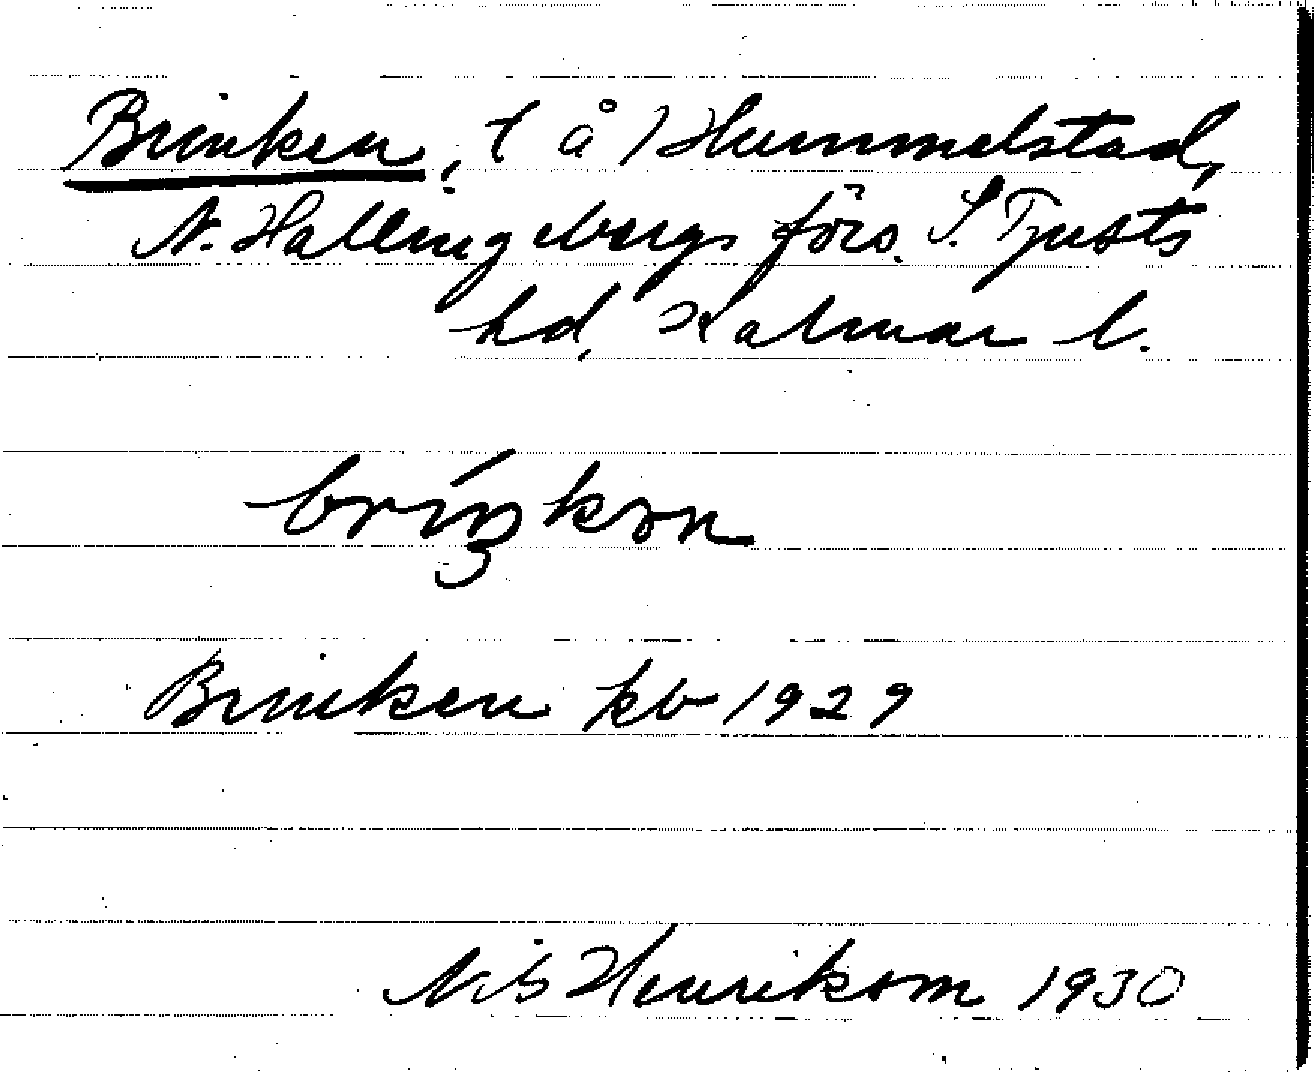 Brinken, t å 1 Hummelstad,
N. Hallingebergs förs. S. Tjusts
hd, Kalmar l.
bríŋkən
Brinken kb 1929
Nils Henrikson 1930